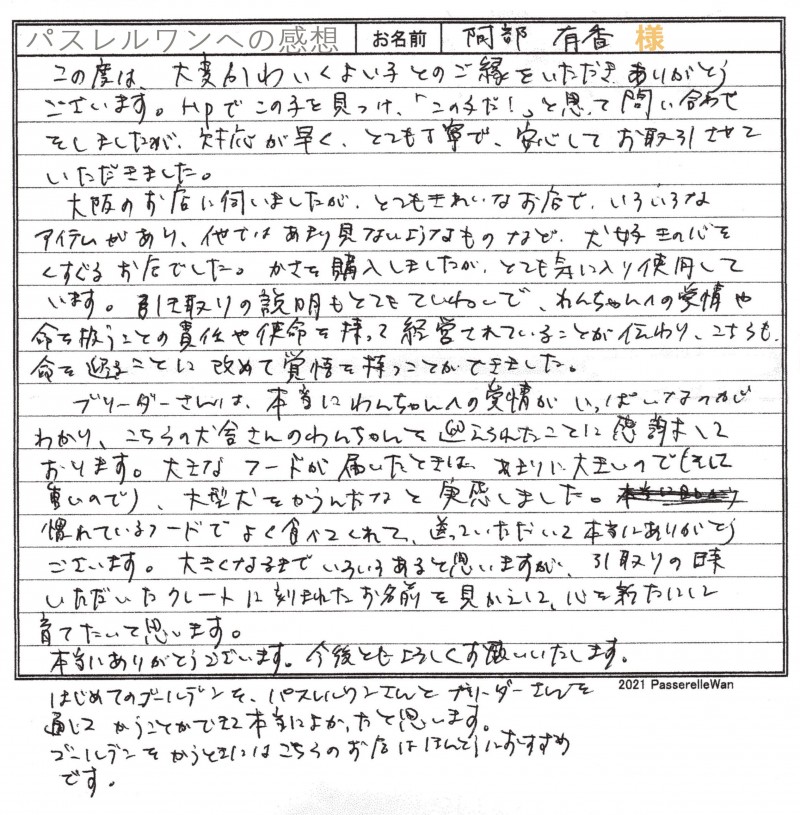 パスレルワンへの感想 お名前 阿部 有香 様
この度は、大変かわいくよい子とのご縁をいただきありがとう
ございます。HPでこの子を見つけ、「この子だ!」と思って問い合わせ
をしましたが、対応が早く、とても丁寧で、安心してお取引させて
いただきました。
大阪のお店に伺いましたが、とてもきれいなお店で、いろいろな
アイテムがあり、他ではあまり見ないようなものなど、犬好きの心を
くすぐるお店でした。かさを購入しましたが、とても気に入り使用して
います。引き取りの説明もとてもていねいで、わんちゃんへの愛情や
命を扱うことの責任や使命を持って経営されていることが伝わり、こちらも、
命を迎えることに改めて覚悟を持つことができました。
ブリーダーさんは、本当にわんちゃんへの愛情がいっぱいなのが
わかり、こちらの犬舎さんのわんちゃんを迎えられたことに感謝して
おります。大きなフードが届いたときは、あまりに大きいので(そして
重いので)、大型犬をかうんだなと実感しました。
慣れているフードでよく食べてくれて、送っていただいて本当にありがとう
ございます。大きくなるまでいろいろあると思いますが、引取りの時
いただいたクレートに刻まれたお名前を見かえして、心を新たにして
育てたいと思います。
本当にありがとうございます。今後ともよろしくお願いいたします。
2021 PasserelleWan
はじめてのゴールデンを、パスレルワンさんとブリーダーさんを
通してかうことができて本当によかったと思います。
ゴールデンをかうときにはこちらのお店はほんとうにおすすめ
です。